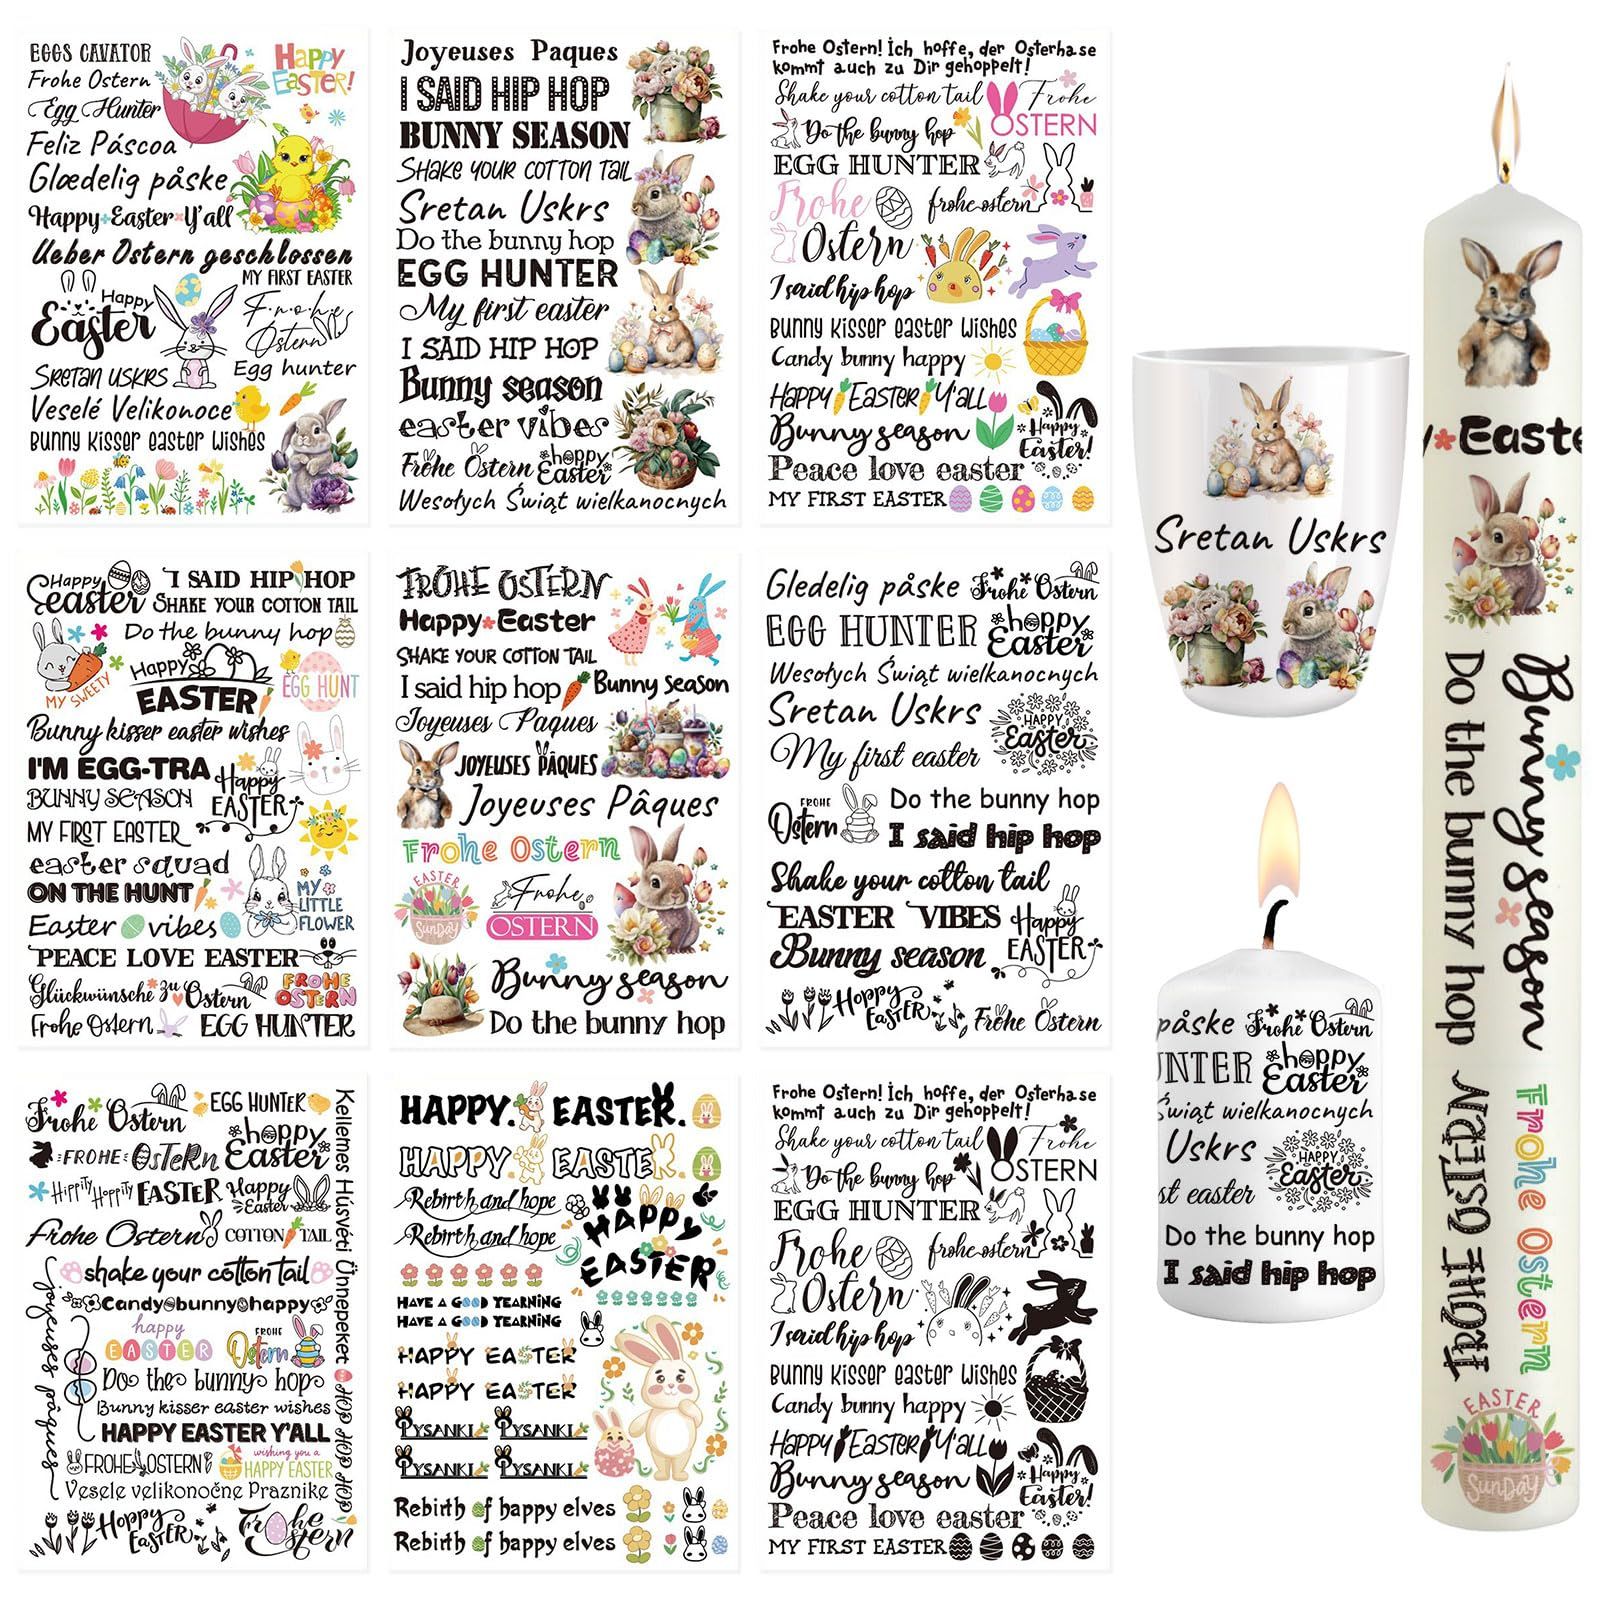 EGGS CAVATOR
Happy EASTER!
Frohe Ostern
Egg Hunter
Feliz Páscoa
Glædelig påske
Happy Easter Y'all
Ueber Ostern geschlossen
MY FIRST EASTER
Happy
Easter
Frohe
Ostern
SRETAN USKRS
Egg hunter
Veselé Velikonoce
Bunny kisser easter wishes
Joyeuses Paques
I SAID HIP HOP
BUNNY SEASON
SHAKE YOUR COTTON TAIL
Sretan Uskrs
Do the bunny hop
EGG HUNTER
My first easter
I SAID HIP HOP
Bunny season
easter vibes
Frohe Ostern
hoppy
Easter
Wesołych Świąt wielkanocnych
Frohe Ostern! Ich hoffe, der Osterhase
kommt auch zu Dir gehoppelt!
Shake your cotton tail
Frohe
OSTERN
Do the bunny hop
EGG HUNTER
Frohe
frohe ostern
Ostern
I said hip hop
Bunny kisser easter wishes
Candy bunny happy
HAPPY EASTER Y'all
Bunny season
Happy
Easter!
Peace love easter
MY FIRST EASTER
Happy
easter
I SAID HIP HOP
SHAKE YOUR COTTON TAIL
Do the bunny hop
MY SWEETY
Happy
EASTER
EGG HUNT
Bunny kisser easter wishes
I'M EGG-TRA
BUNNY SEASON
Happy
EASTER
MY FIRST EASTER
easter squad
ON THE HUNT
MY
LITTLE
FLOWER
Easter vibes
PEACE LOVE EASTER
Glückwünsche zu Ostern
FROHE
OSTERN
Frohe Ostern
EGG HUNTER
FROHE OSTERN
Happy Easter
SHAKE YOUR COTTON TAIL
I said hip hop
Bunny Season
Joyeuses Paques
JOYEUSES PÂQUES
Joyeuses Pâques
Frohe Ostern
EASTER
SunDay
Frohe
OSTERN
Bunny season
Do the bunny hop
Gledelig påske
Frohe Ostern
EGG HUNTER
hoppy
Easter
Wesołych Świąt wielkanocnych
Sretan Uskrs
HAPPY
Easter
My first easter
FROHE
Ostern
Do the bunny hop
I said hip hop
Shake your cotton tail
EASTER VIBES
Happy
EASTER
Bunny season
Hoppy
EASTER
Frohe Ostern
Frohe Ostern
EGG HUNTER
hoppy
Easter
FROHE OSTERN
HIPPITY HOPPITY EASTER
Happy
Easter
Frohe Ostern
COTTON TAIL
shake your cotton tail
Candy bunny happy
happy
EASTER
FROHE
Ostern
Do the bunny hop
Bunny kisser easter wishes
HAPPY EASTER Y'ALL
FROHE OSTERN
wishing you a
HAPPY EASTER
Vesele velikonočne Praznike
Hoppy
EASTER
Frohe
stern
joyeuses pâques
Kellemes Húsvéti Ünnepeket
HOP HOP HOP
HAPPY. EASTER.
HAPPY EASTER
Rebirth and hope
Rebirth and hope
HAPPY
EASTER
HAVE A GOOD YEARNING
HAVE A GOOD YEARNING
HAPPY EASTER
HAPPY EASTER
PYSANKI PYSANKI
PYSANKI PYSANKI
Rebirth of happy elves
Rebirth of happy elves
Frohe Ostern! Ich hoffe, der Osterhase
kommt auch zu Dir gehoppelt!
Shake your cotton tail
Frohe
OSTERN
Do the bunny hop
EGG HUNTER
Frohe
frohe ostern
Ostern
I said hip hop
Bunny kisser easter wishes
Candy bunny happy
HAPPY EASTER Y'all
Bunny season
Happy
Easter!
Peace love easter
MY FIRST EASTER
Sretan Uskrs
påske Frohe Ostern
NTER
hoppy
Easter
Świąt wielkanocnych
Uskrs
HAPPY
Easter
st easter
Do the bunny hop
I said hip hop
y Easte
Bunny season
Do the bunny hop
Frohe Ostern
FROHE OSTERN
EASTER
SunDay